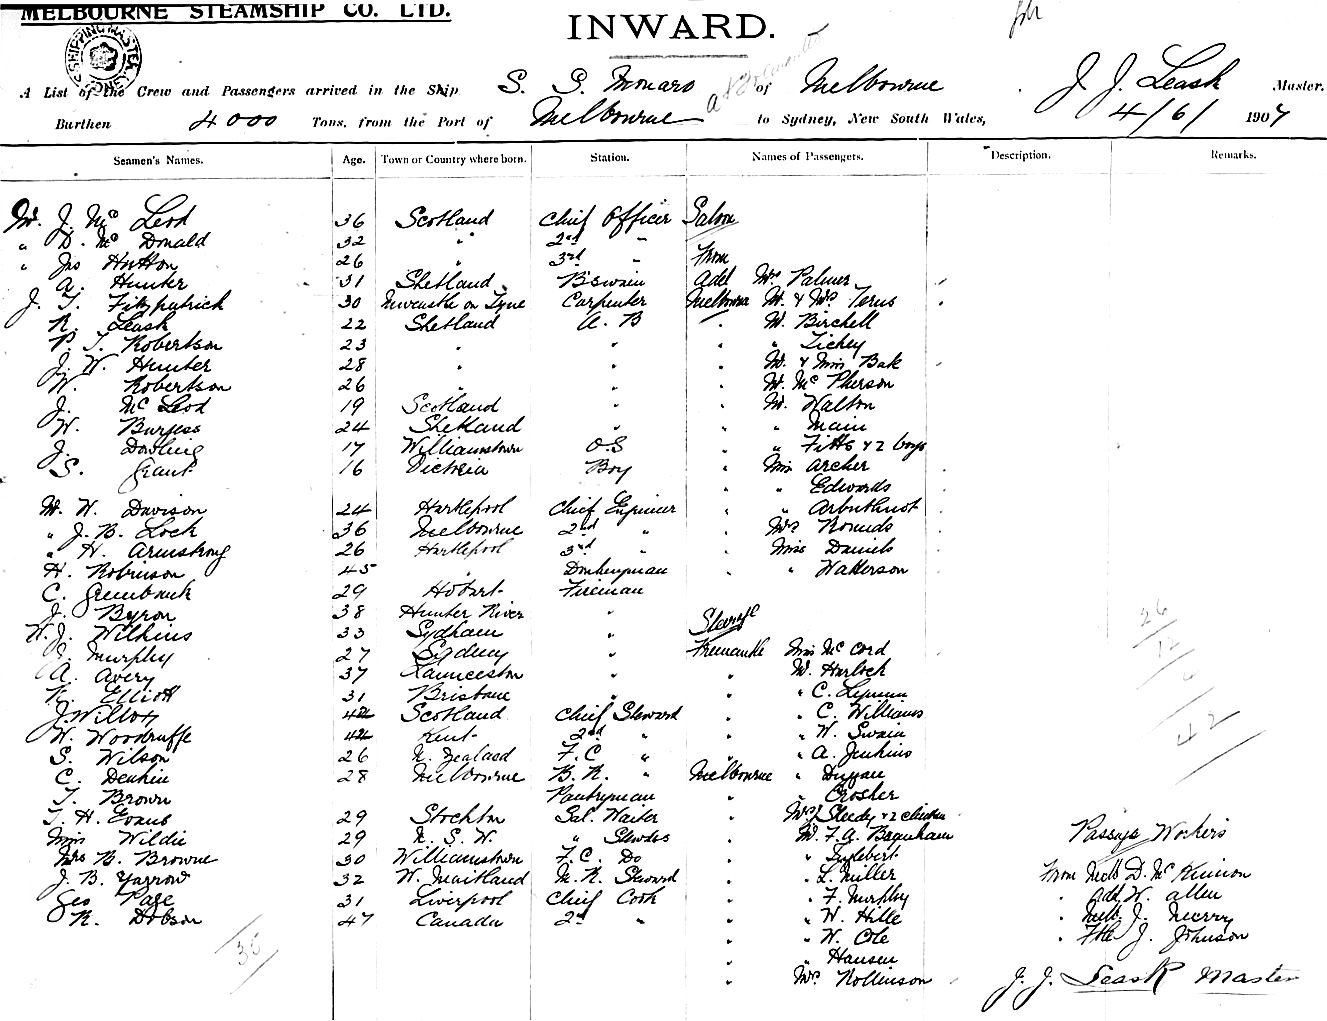 MELBOURNE STEAMSHIP CO. LTD.
INWARD.
SHIPPING MASTER
A List of the Crew and Passengers arrived in the Ship S. S. Monaro of Melbourne J. J. Leask Master.
Burthen 4000 Tons, from the Port of Melbourne to Sydney, New South Wales, 4/6/1907
Seamen's Names. Age. Town or Country where born. Station. Names of Passengers. Description. Remarks.
Mr. J. Mc Leod 36 Scotland Chief Officer Saloon
" D. Mc Donald 32 " 2nd "
" Jno Hutton 26 " 3rd " From
A. Hunter 31 Shetland B'swain Adel Mrs Palmer
J. T. Fitzpatrick 30 Newcastle on Tyne Carpenter Melbourne Mr & Mrs
R. Leask 22 Shetland A. B " Mr Birchell
P. T. Robertson 23 " " " "
J. W. Hunter 28 " " " Mr & Miss Bak
W. Robertson 26 " " " Mr Mc Pherson
J. Mc Leod 19 Scotland " " Mr Walton
W. Burgess 24 Shetland " " " Main
J. Dowling 17 Williamstown O.S " " & 2 boys
S. Grant 16 Victoria Boy " Miss Archer
" " Edwards
Mr. W. Davison 24 Hartlepool Chief Engineer " " Arbuthnot
" J. B. Lock 36 Melbourne 2nd " " Mrs Rounds
" H. Armstrong 26 Hartlepool 3rd " " Miss Daniels
H. Robinson 45 " Donkeyman " " Watterson
C. 29 Hobart Fireman
J. Byron 38 Hunter River "
W. J. Wilkins 33 Sydham " Steerage
J. Murphy 27 Sydney " Fremantle Miss Mc Cord
A. Avery 37 Launceston " " Mr Harlock
Elliott 31 Brisbane " " " C.
J. Willox 42 Scotland Chief Steward " " C. Williams
W. Woodruffe 42 Kent 2nd " " " W. Swain
S. Wilson 26 N. Zealand F.C " " " A. Jenkins
C. 28 Melbourne B. R. " Melbourne " Duggan
T. Brown Pantryman " " Crosher
T. H. Evans 29 Stockton Sal. Waiter " Mrs & 2 children
Miss Wildie 29 N. S. W. " Stewdes " Mr F. A. Branham Passage Workers
Mrs B. Browne 30 Williamstown F. C. Do " " Inglebert
J. B. Yarrow 32 W. Maitland M. R. Steward " " L. Miller From Melb D. Mc Kinnon
Geo Page 31 Liverpool Chief Cook " " F. Murphy " Adel W. Allen
R. Dobson 47 Canada 2nd " " " W. Hille " Melb J.
" " W. Cole " J. Johnson
" " Hansen
" Mrs Rollinson J. J. Leask Master
35
26
12
42